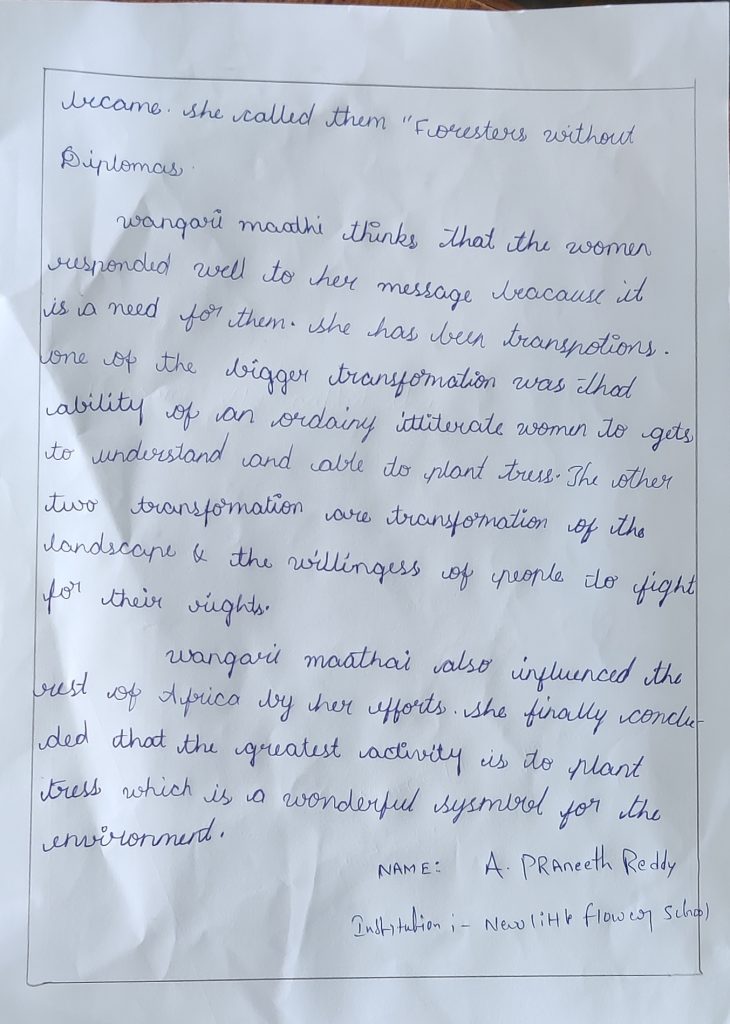 became. she called them "Foresters without
Diplomas.
wangarii maathi thinks that the women
responded well to her message beacause it
is a need for them. she has been transpotions.
one of the bigger transfomation was thad
ability of an ordainy illiterate women to gets
to understand and able to plant tress. The other
two transfomation are transfomation of the
landscape & the willingess of people to fight
for their rights.
wangarii maathai also influenced the
rest of Africa by her efforts. she finally conclu-
ded that the greatest activity is to plant
tress which is a wonderful sysmbol for the
environment.
NAME: A. PRAneeth Reddy
Institution :- New little flower School